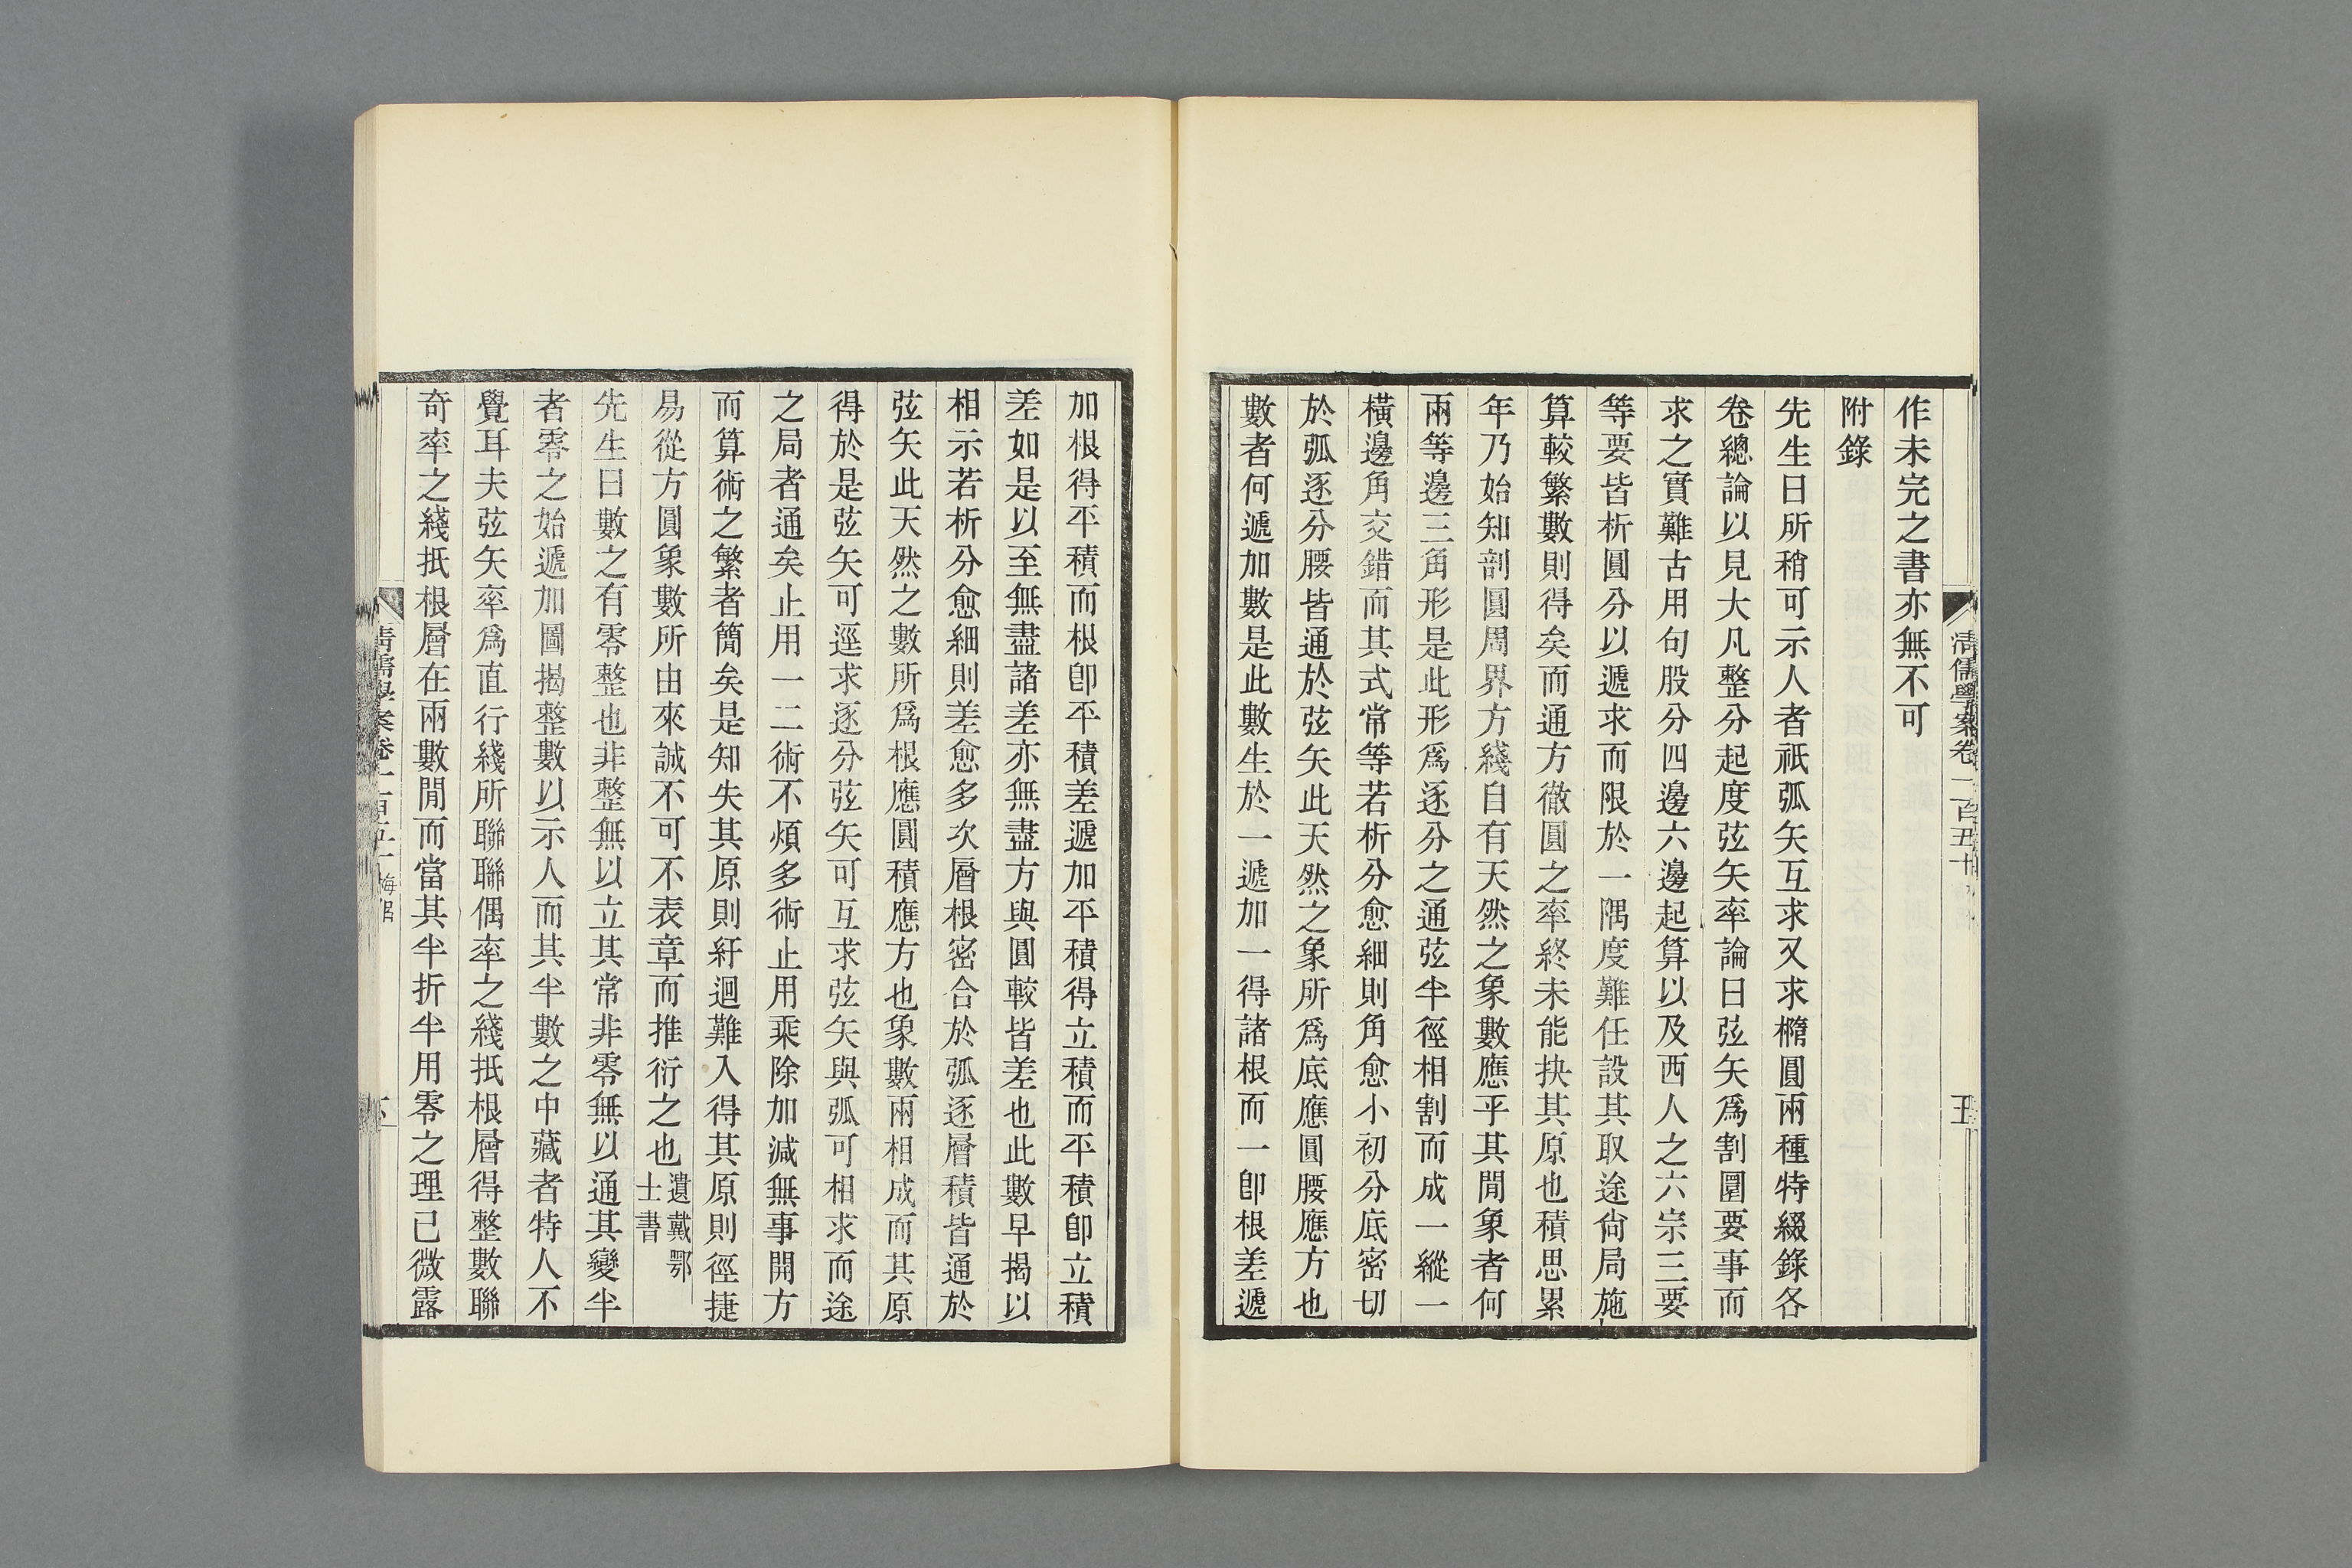 作未完之書亦無不可
附錄
先生曰所稍可示人者祇弧矢互求又求橢圓兩種特綴錄各
卷總論以見大凡整分起度弦矢率論曰弦矢爲割圜要事而
求之實難古用句股分四邊六邊起算以及西人之六宗三要
等要皆析圓分以遞求而限於一隅度難任設其取途尙局施
算較繁數則得矣而通方徹圓之率終未能抉其原也積思累
年乃始知剖圓周界方綫自有天然之象數應乎其閒象者何
兩等邊三角形是此形爲逐分之通弦半徑相割而成一縱一
橫邊角交錯而其式常等若析分愈細則角愈小初分底密切
於弧逐分腰皆通於弦矢此天然之象所爲底應圓腰應方也
數者何遞加數是此數生於一遞加一得諸根而一卽根差遞
加根得平積而根卽平積差遞加平積得立積而平積卽立積
差如是以至無盡諸差亦無盡方與圓較皆差也此數早揭以
相示若析分愈細則差愈多次層根密合於弧逐層積皆通於
弦矢此天然之數所爲根應圓積應方也象數兩相成而其原
得於是弦矢可逕求逐分弦矢可互求弦矢與弧可相求而途
之局者通矣止用一二術不煩多術止用乘除加減無事開方
而算術之繁者簡矣是知失其原則紆迴難入得其原則徑捷
易從方圓象數所由來誠不可不表章而推衍之也遺戴鄂士書
先生曰數之有零整也非整無以立其常非零無以通其變半
者零之始遞加圖揭整數以示人而其半數之中藏者特人不
覺耳夫弦矢率爲直行綫所聯聯偶率之綫扺根層得整數聯
奇率之綫扺根層在兩數閒而當其半折半用零之理已微露
清儒學案卷一百五十
五